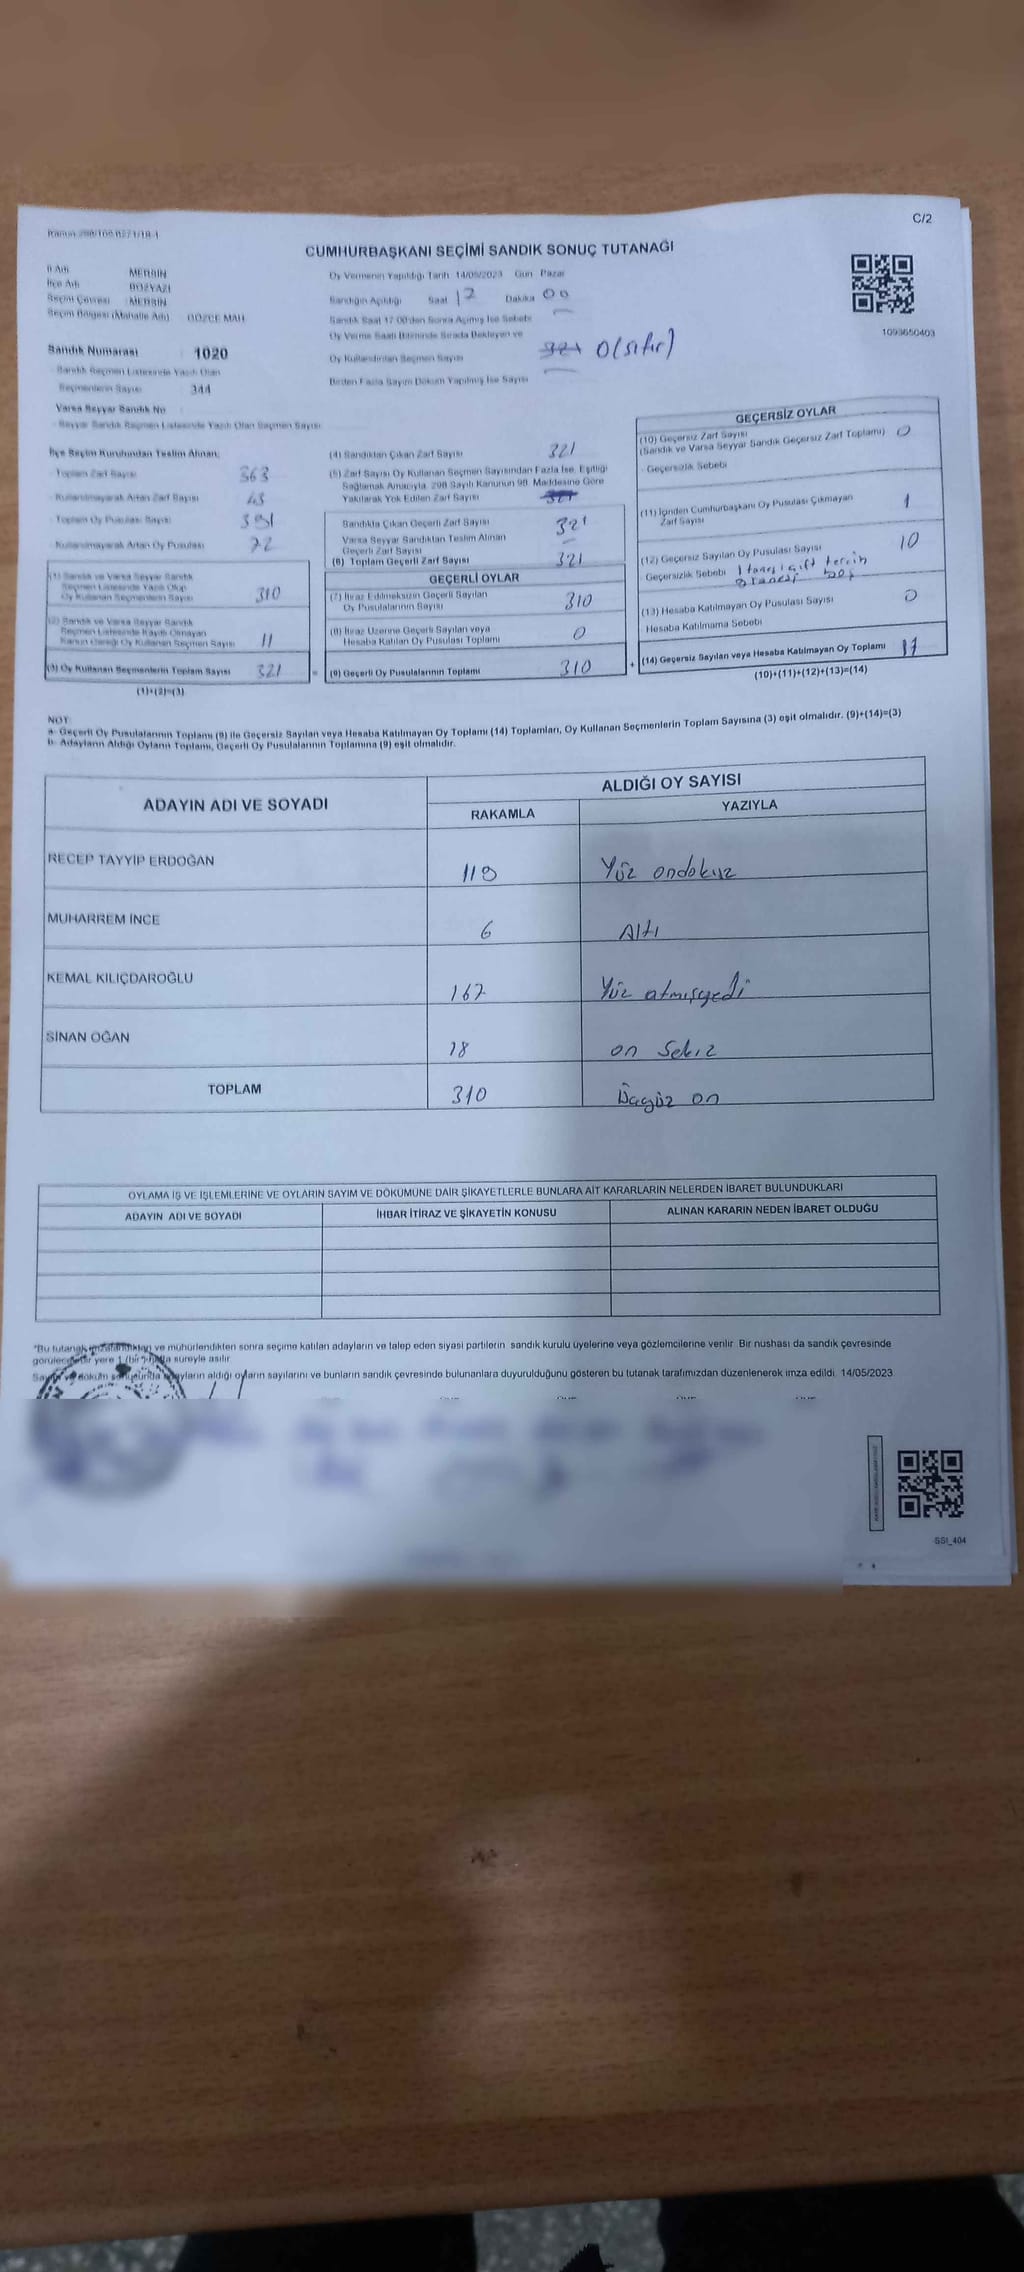 C/2
CUMHURBAŞKANI SEÇİMİ SANDIK SONUÇ TUTANAĞI
İl Adı MERSİN
İlçe Adı BOZYAZI
Seçim Çevresi : MERSİN
Seçim Bölgesi (Mahalle Adı) GÖZCE MAH.
Oy Vermenin Yapıldığı Tarih 14/05/2023 Gün Pazar
Sandığın Açıldığı Saat 17 Dakika 00
Sandık Saat 17:00'den Sonra Açılmış İse Sebebi
Oy Verme Saati Bitiminde Sırada Bekleyen ve
Oy Kullandırılan Seçmen Sayısı 321 0 (sıfır)
Birden Fazla Sayım Döküm Yapılmış İse Sayısı
1093650403
Sandık Numarası : 1020
Sandık Seçmen Listesinde Yazılı Olan
Seçmenlerin Sayısı 344
Varsa Seyyar Sandık No
Seyyar Sandık Seçmen Listesinde Yazılı Olan Seçmen Sayısı
İlçe Seçim Kurulundan Teslim Alınan;
Toplam Zarf Sayısı 363
Kullanılmayarak Artan Zarf Sayısı 43
Toplam Oy Pusulası Sayısı 391
Kullanılmayarak Artan Oy Pusulası 72
(1) Sandık ve Varsa Seyyar Sandık
Seçmen Listesinde Yazılı Olup
Oy Kullanan Seçmenlerin Sayısı 310
(2) Sandık ve Varsa Seyyar Sandık
Seçmen Listesinde Kayıtlı Olmayan
Kanun Gereği Oy Kullanan Seçmen Sayısı 11
(3) Oy Kullanan Seçmenlerin Toplam Sayısı 321
(1)+(2)=(3)
(4) Sandıktan Çıkan Zarf Sayısı 321
(5) Zarf Sayısı Oy Kullanan Seçmen Sayısından Fazla İse, Eşitliği
Sağlamak Amacıyla, 298 Sayılı Kanunun 98. Maddesine Göre
Yakılarak Yok Edilen Zarf Sayısı
Sandıkta Çıkan Geçerli Zarf Sayısı 321
Varsa Seyyar Sandıktan Teslim Alınan
Geçerli Zarf Sayısı
(6) Toplam Geçerli Zarf Sayısı 321
GEÇERLİ OYLAR
(7) İtiraz Edilmeksizin Geçerli Sayılan
Oy Pusulalarının Sayısı 310
(8) İtiraz Üzerine Geçerli Sayılan veya
Hesaba Katılan Oy Pusulası Toplamı 0
(9) Geçerli Oy Pusulalarının Toplamı 310
GEÇERSİZ OYLAR
(10) Geçersiz Zarf Sayısı
(Sandık ve Varsa Seyyar Sandık Geçersiz Zarf Toplamı) 0
Geçersizlik Sebebi
(11) İçinden Cumhurbaşkanı Oy Pusulası Çıkmayan
Zarf Sayısı 1
(12) Geçersiz Sayılan Oy Pusulası Sayısı 10
Geçersizlik Sebebi 1 tanesi çift tercih
9 tanesi boş
(13) Hesaba Katılmayan Oy Pusulası Sayısı 0
Hesaba Katılmama Sebebi
(14) Geçersiz Sayılan veya Hesaba Katılmayan Oy Toplamı 11
(10)+(11)+(12)+(13)=(14)
NOT:
a- Geçerli Oy Pusulalarının Toplamı (9) ile Geçersiz Sayılan veya Hesaba Katılmayan Oy Toplamı (14) Toplamları, Oy Kullanan Seçmenlerin Toplam Sayısına (3) eşit olmalıdır. (9)+(14)=(3)
b- Adayların Aldığı Oyların Toplamı, Geçerli Oy Pusulalarının Toplamına (9) eşit olmalıdır.
ADAYIN ADI VE SOYADI
ALDIĞI OY SAYISI
RAKAMLA YAZIYLA
RECEP TAYYİP ERDOĞAN 119 Yüz ondokuz
MUHARREM İNCE 6 Altı
KEMAL KILIÇDAROĞLU 167 Yüz atmışyedi
SİNAN OĞAN 18 on Sekiz
TOPLAM 310 Üçyüz on
OYLAMA İŞ VE İŞLEMLERİNE VE OYLARIN SAYIM VE DÖKÜMÜNE DAİR ŞİKAYETLERLE BUNLARA AİT KARARLARIN NELERDEN İBARET BULUNDUKLARI
ADAYIN ADI VE SOYADI
İHBAR İTİRAZ VE ŞİKAYETİN KONUSU
ALINAN KARARIN NEDEN İBARET OLDUĞU
"Bu tutanak imzalandıktan ve mühürlendikten sonra seçime katılan adayların ve talep eden siyasi partilerin sandık kurulu üyelerine veya gözlemcilerine verilir. Bir nushası da sandık çevresinde
görülecek bir yere 1 (bir) hafta süreyle asılır.
Sayım ve döküm sonucunda adayların aldığı oyların sayılarını ve bunların sandık çevresinde bulunanlara duyurulduğunu gösteren bu tutanak tarafımızdan düzenlenerek imza edildi. 14/05/2023
SSI_404